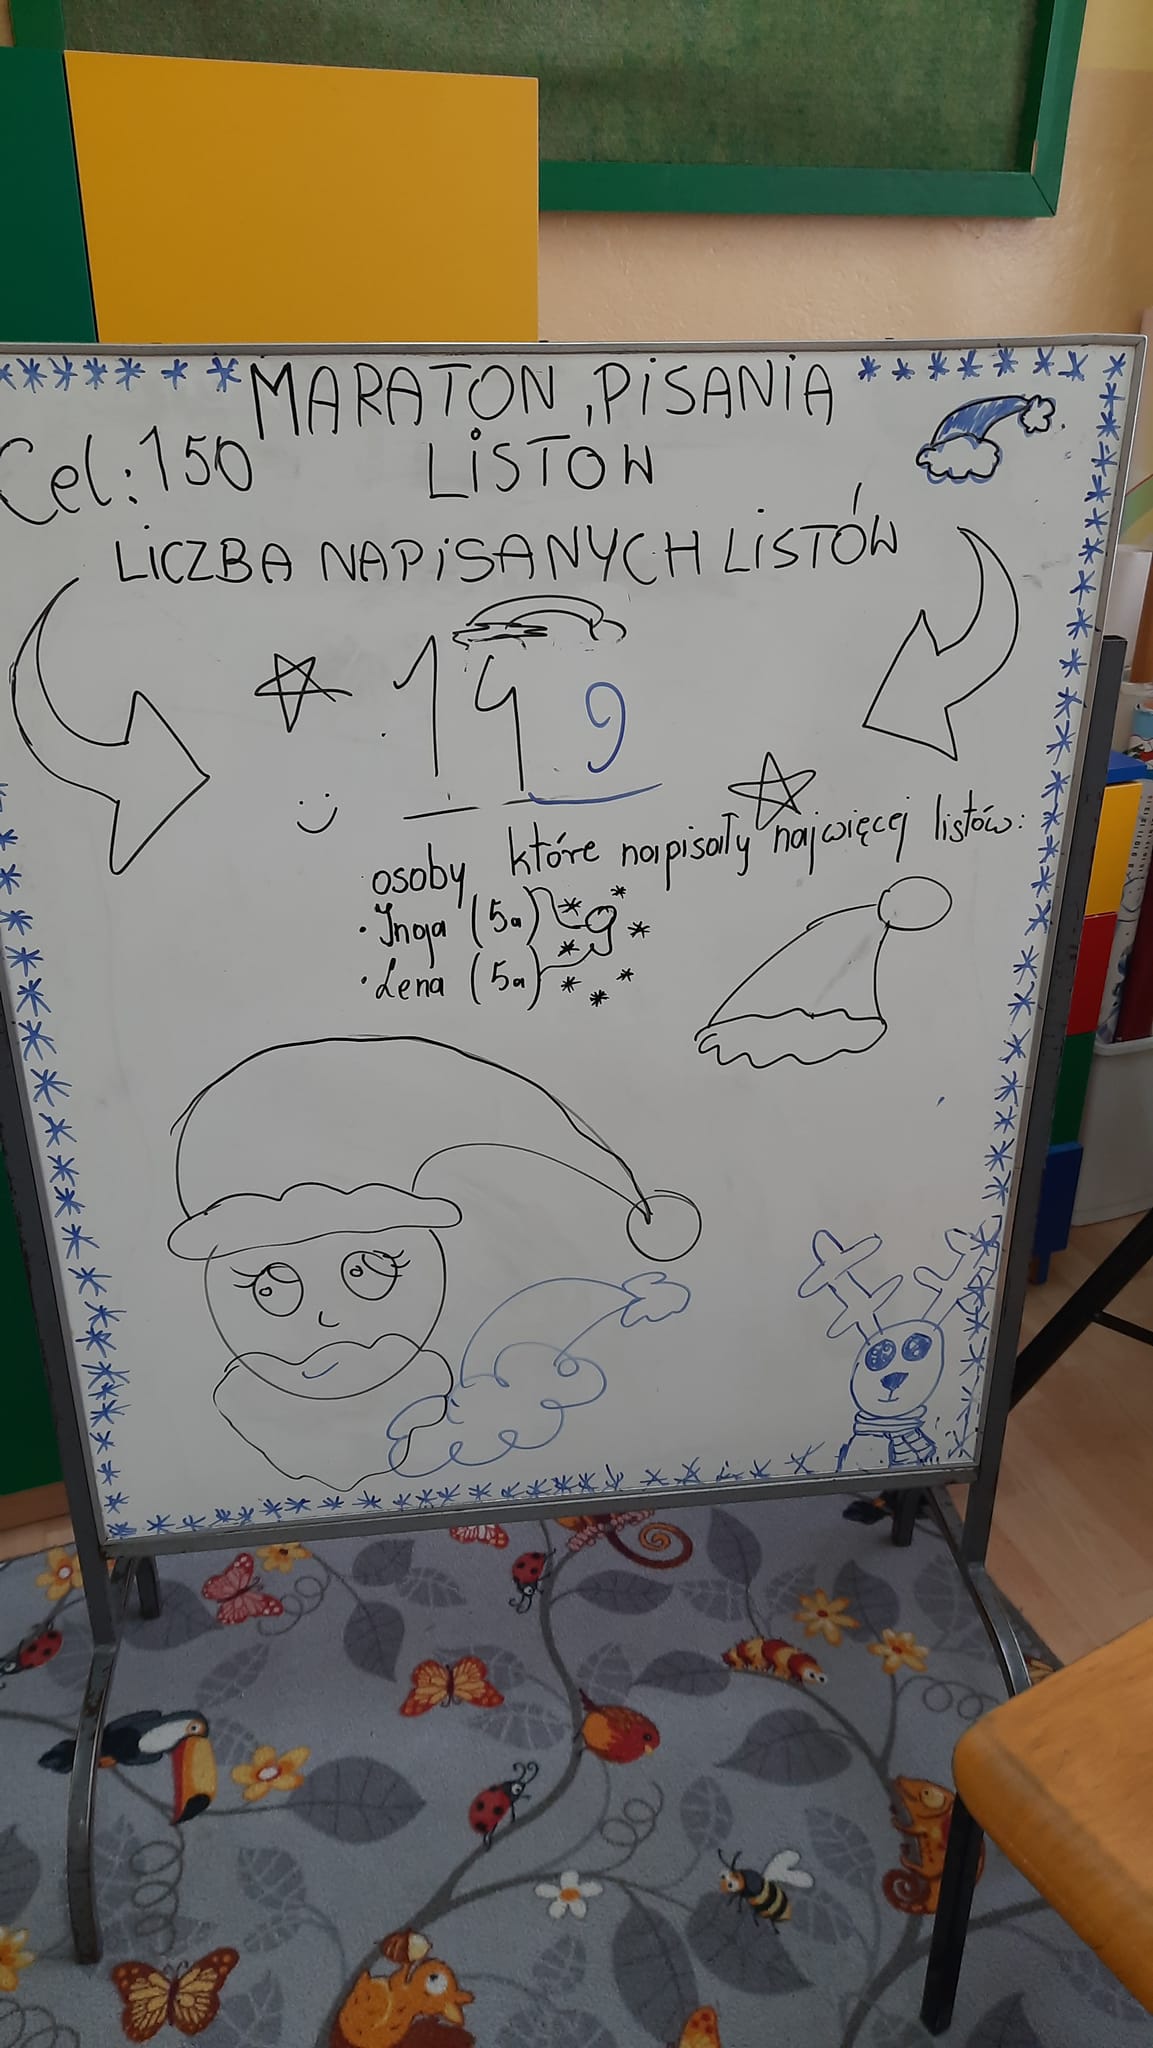 MARATON PiSANiA
LiSTOW
Cel: 150
LiCZBA NAPiSANYCH LiSTÓW
149
osoby które napisały najwięcej listów:
• Inga (5a)
• Lena (5a)